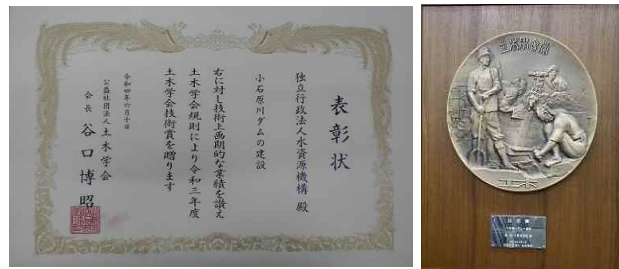 表彰状
独立行政法人水資源機構 殿
小石原川ダムの建設
右に対し技術上画期的な業績を讃え
土木学会規則により令和三年度
土木学会技術賞を贈ります
令和四年六月十日
公益社団法人 土木学会
会長 谷口博昭